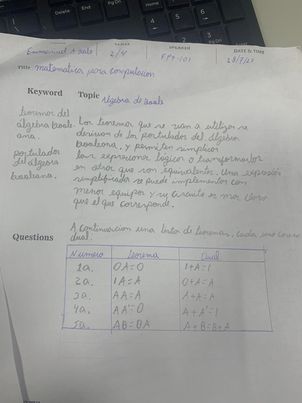 CLASS
SPEAKER
DATE & TIME
2/4
FPM-101
Title matematica para computacion
Keyword
Topic Algebra de Boole
teoremas del
algebra boole
ana.
postulados
del algebra
booleana.
Los teoremas que se van a utilizar se
derivan de los postulados del algebra
booleana, y permiten simplificar
las expresiones lógicas o transformarlas
en otras que son equivalentes. Una expresión
simplificada se puede implementar con
menos equipo y su circuito es mas claro
que el que corresponde.
Questions
A continuacion una lista de teoremas, cada uno con su
dual.
Numero Teorema Dual
1a. 0A=0 1+A=1
2a. 1A=A 0+A=A
3a. AA=A A+A=A
4a. AA'=0 A+A'=1
5a. AB=BA A+B=B+A